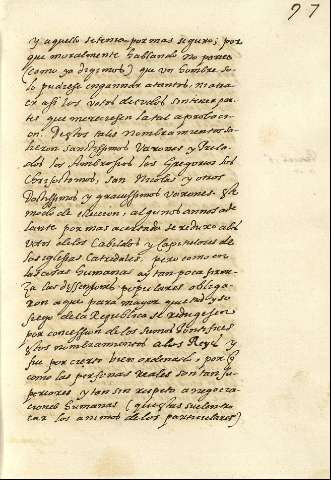 97
y aquello se tenia por mas seguro; por
que moralmente hablando no parece
(como ya digimos) que un hombre so
lo pudiese engannar a tantos, ni atra
er assi los votos de todos sin tener par
tes que mereciesen la tal aprobaci
on. Destos tales nombramientos sa
lieron santissimos Varones y Prela
dos los Ambrosios los Gregorios los
Chrisostomos, san Nicolas y otros
Doctissimos y gravissimos varones. Este
modo de eleccion, algunos annos ade
lante por mas acertado se reduxo a los
votos de los Cabildos y Capitulares de
las iglesias Catedrales. pero como en
las cosas humanas ay tan poca firme
za las dissensiones populares obliga
ron a que para mayor quietud y so
siego de la Republica se reduxesen
por concession de los sumos Pontifices
estos nombramientos a los Reyes y
fue por cierto bien ordenado, por q
como las personas reales son tan su
periores y tan sin respeto a negocia
ciones humanas (que estas suelen no
tar los animos de los particulares)